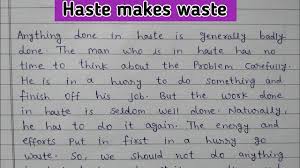 Haste makes waste
Anything done in haste is generally badly
done. The man who is in haste has no
time to think about the Problem Carefully.
He is in a hurry to do something and
finish off his job. But the work done
in haste is seldom well done. Naturally,
he has to do it again. The energy and
efforts Put in first in a hurry go
waste. So, we should not do anything